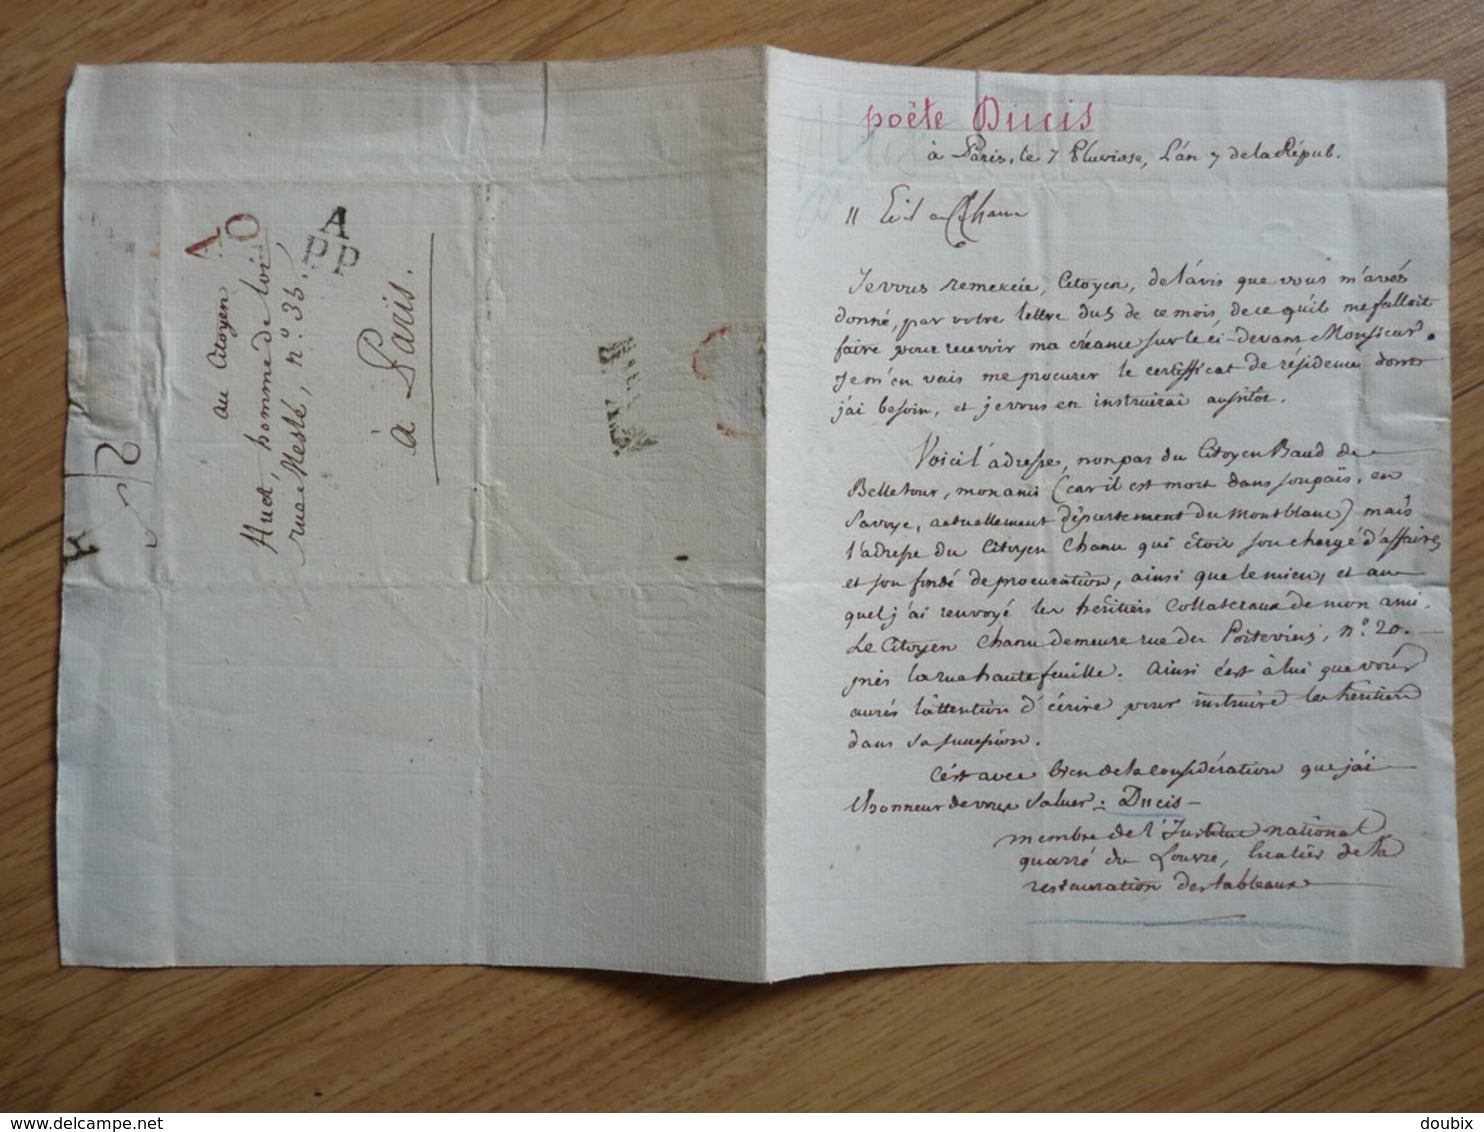 au Citoyen
Huet, homme de loi
rue Meslé, n.° 35.
à Paris.
A
P P
poète Ducis
à Paris, le 7 Pluviose, L'an 7 de la Répub.
Je vous remercie, Citoyen, de l'avis que vous m'avés
donné, par votre lettre du 5 de ce mois, de ce qu'il me falloit
faire pour recevoir ma créance sur le ci-devant Monsieur.
Je m'en vais me procurer le certificat de résidence dont
j'ai besoin, et je vous en instruirai aussitôt.
Voici l'adresse, non pas du Citoyen Baud de
Belletour, mon ami (car il est mort dans son païs, en
Savoye, actuellement département du Montblanc) mais
l'adresse du Citoyen Chanu qui étoit son chargé d'affaires
et son fondé de procuration, ainsi que le mien, et au
quel j'ai renvoyé les héritiers collateraux de mon ami.
Le Citoyen Chanu demeure rue des Poitevins, n.° 20.
près la rue hautefeuille. Ainsi c'est à lui que vous
aurés l'attention d'écrire pour instruire les héritiers
dans sa succession.
C'est avec bien de la considération que j'ai
l'honneur de vous saluer: Ducis
membre de l'Institut national,
quarré du Louvre, Escalier de la
restauration des tableaux
delcampe.net
doubix